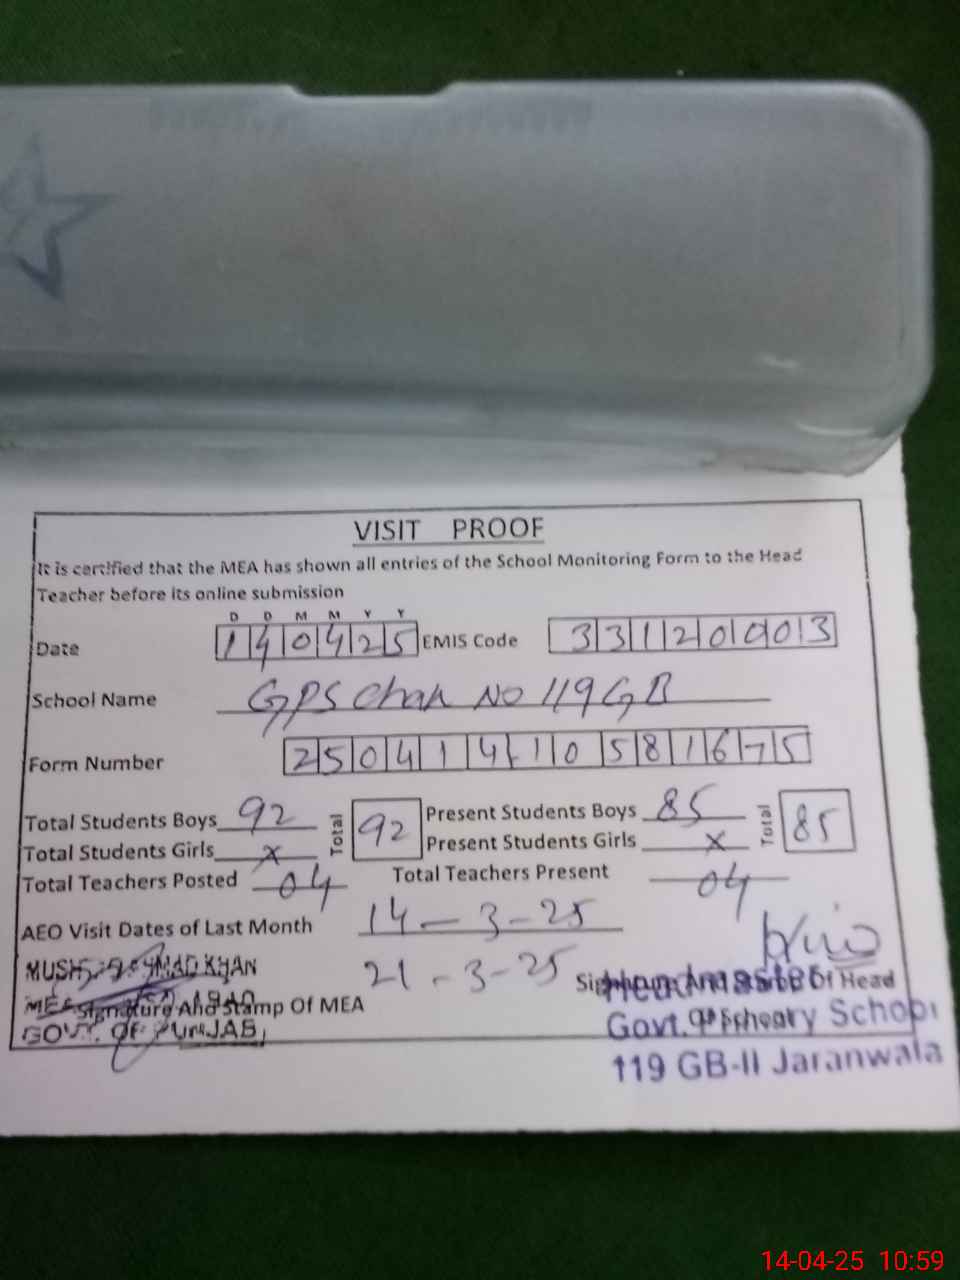 VISIT PROOF
It is certified that the MEA has shown all entries of the School Monitoring Form to the Head
Teacher before its online submission
D D M M Y Y
Date 140425 EMIS Code 33120003
School Name GPS Chak No 119 GB
Form Number 25041410581675
Total Students Boys 92 Total 92 Present Students Boys 85 Total 85
Total Students Girls x Present Students Girls x
Total Teachers Posted 04 Total Teachers Present 04
AEO Visit Dates of Last Month 14-3-25
21-3-25
KHAN
MEA
Signature And Stamp Of MEA
GOVT. OF PUNJAB
Signature And Stamp Of Head
Headmaster
Govt. Primary School
119 GB-II Jaranwala
14-04-25 10:59